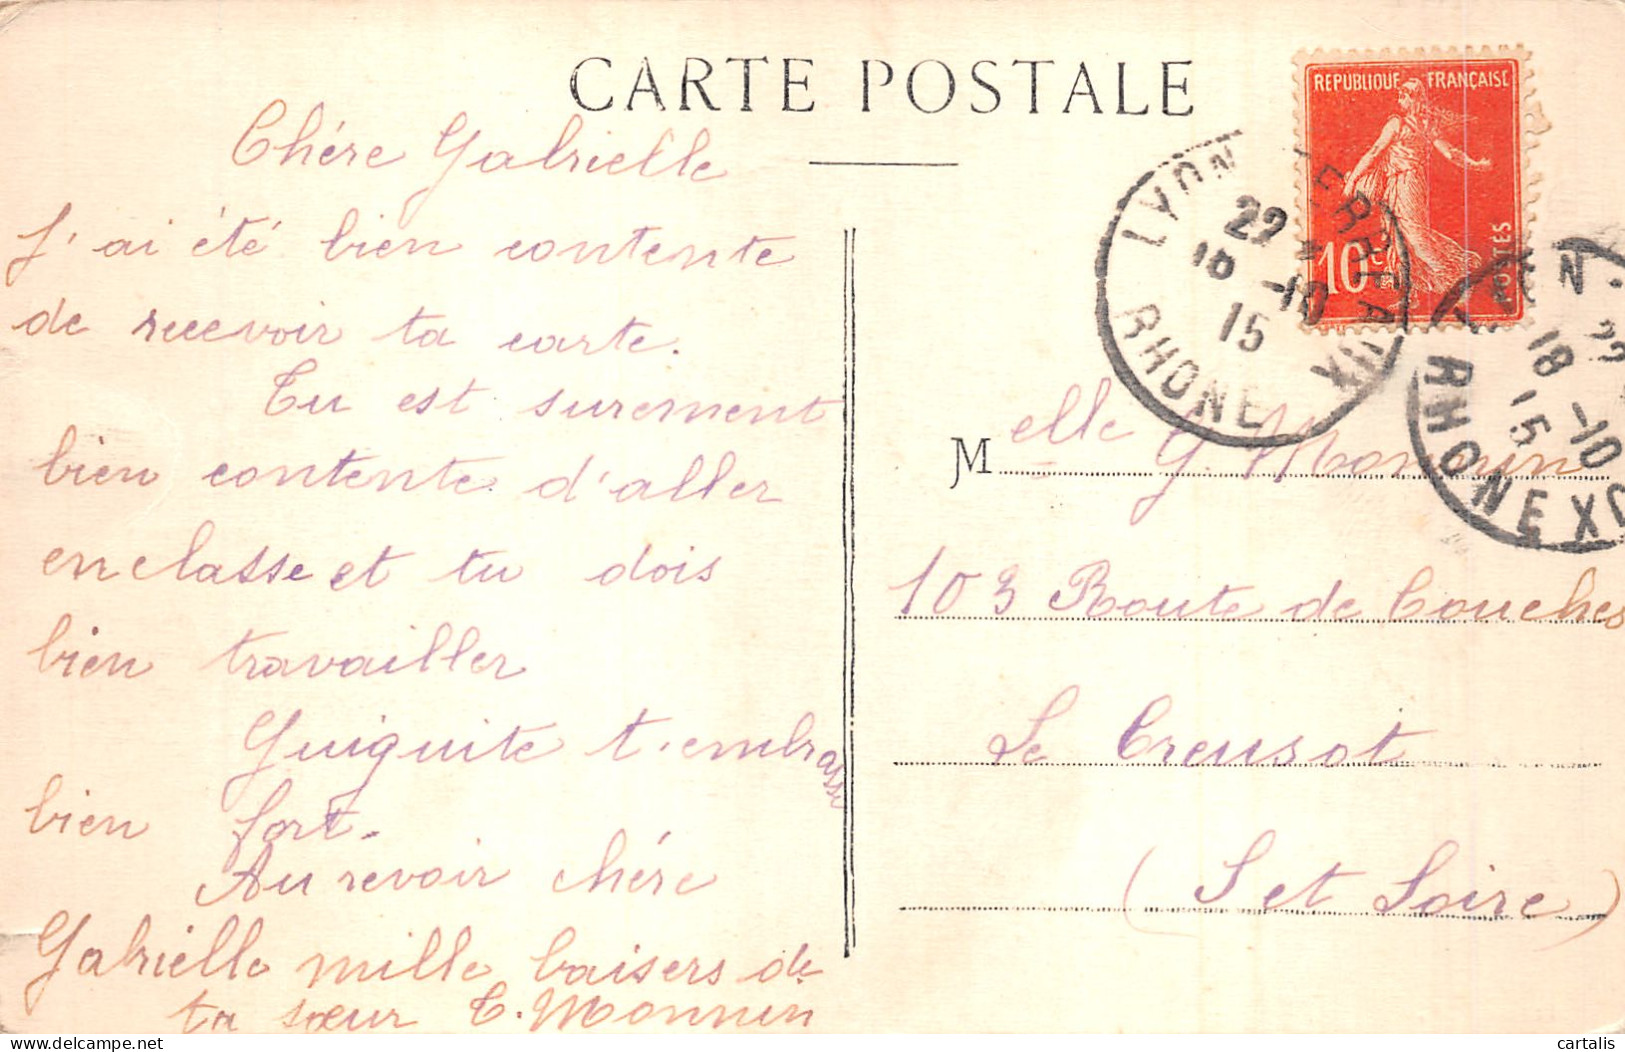 CARTE POSTALE
REPUBLIQUE FRANÇAISE
10c
POSTES
LYON TERREAUX
22
18 -10
15
RHONE
22
18 -10
15
RHONE
Chére Gabrielle
J'ai été bien contente
de recevoir ta carte.
Tu est surement
bien contente d'aller
en classe et tu dois
bien travailler
Guiguite t'embrasse
bien fort.
Au revoir chére
Gabrielle mille baisers de
ta sœur C. Monnin
Melle G. Monnin
103 Route de Couches
Le Creusot
(S et Loire)
cartalis
delcampe.net